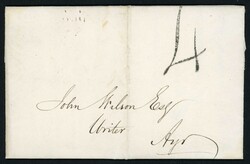 4
John Wilson Esqr
Writer
Ayr